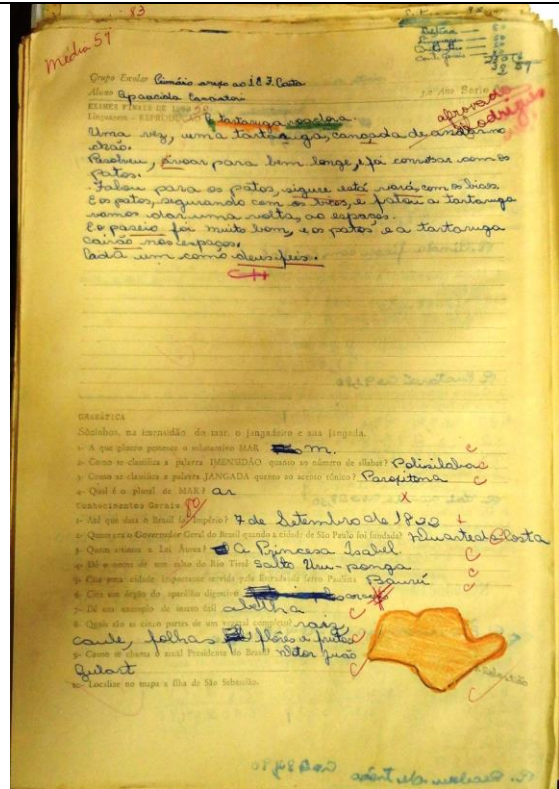 83
Média 57
Grupo Escolar Primário anexo ao I.E.F. Costa
Aluno Aparecida
3.o Ano Serie
EXAMES FINAIS DE
aprovada
Linguagem - REPRODUÇÃO A tartaruga voadora.
Uma vez, uma tartaruga, cançada de andar no
chão.
Resolveu, avoar para bem longe, e foi conversar com os
patos.
Falou para os patos, sigure está vará, com os bicos.
E os patos, segurando com os bicos, e falou a tartaruga
vamos dar uma volta, ao espaços.
E o paseio foi muito bom, e os patos e a tartaruga
cairão nos espaços.
Cada um como deus feis.
GRAMÁTICA
Sòzinhos, na imensidão do mar, o jangadeiro e sua jangada.
1- A que gênero pertence o substantivo MAR m.
2- Como se classifica a palavra IMENSIDÃO quanto ao número de sílabas? Polisilaba
3- Como se classifica a palavra JANGADA quanto ao acento tônico? Paroxitona
4- Qual é o plural de MAR? ar
Conhecimentos Gerais 80
1- Até que data o Brasil foi Império? 7 de Setembro de 1822
2- Quem era o Governador Geral do Brasil quando a cidade de São Paulo foi fundada? Duarte da Costa
3- Quem assinou a Lei Áurea? A Princesa Isabel
4- Dê o nome de um salto do Rio Tietê salto Uru-ponga
5- Cite uma cidade importante servida pela Estrada de ferro Paulista Baurú
6- Cite um órgão do aparelho digestivo
7- Dê um exemplo de inseto útil abelha
8- Quais são as cinco partes de um vegetal completo? raiz,
caule, folhas flôres e frutos
9- Como se chama o atual Presidente do Brasil? João
Gulart
10- Localize no mapa a ilha de São Sebastião.